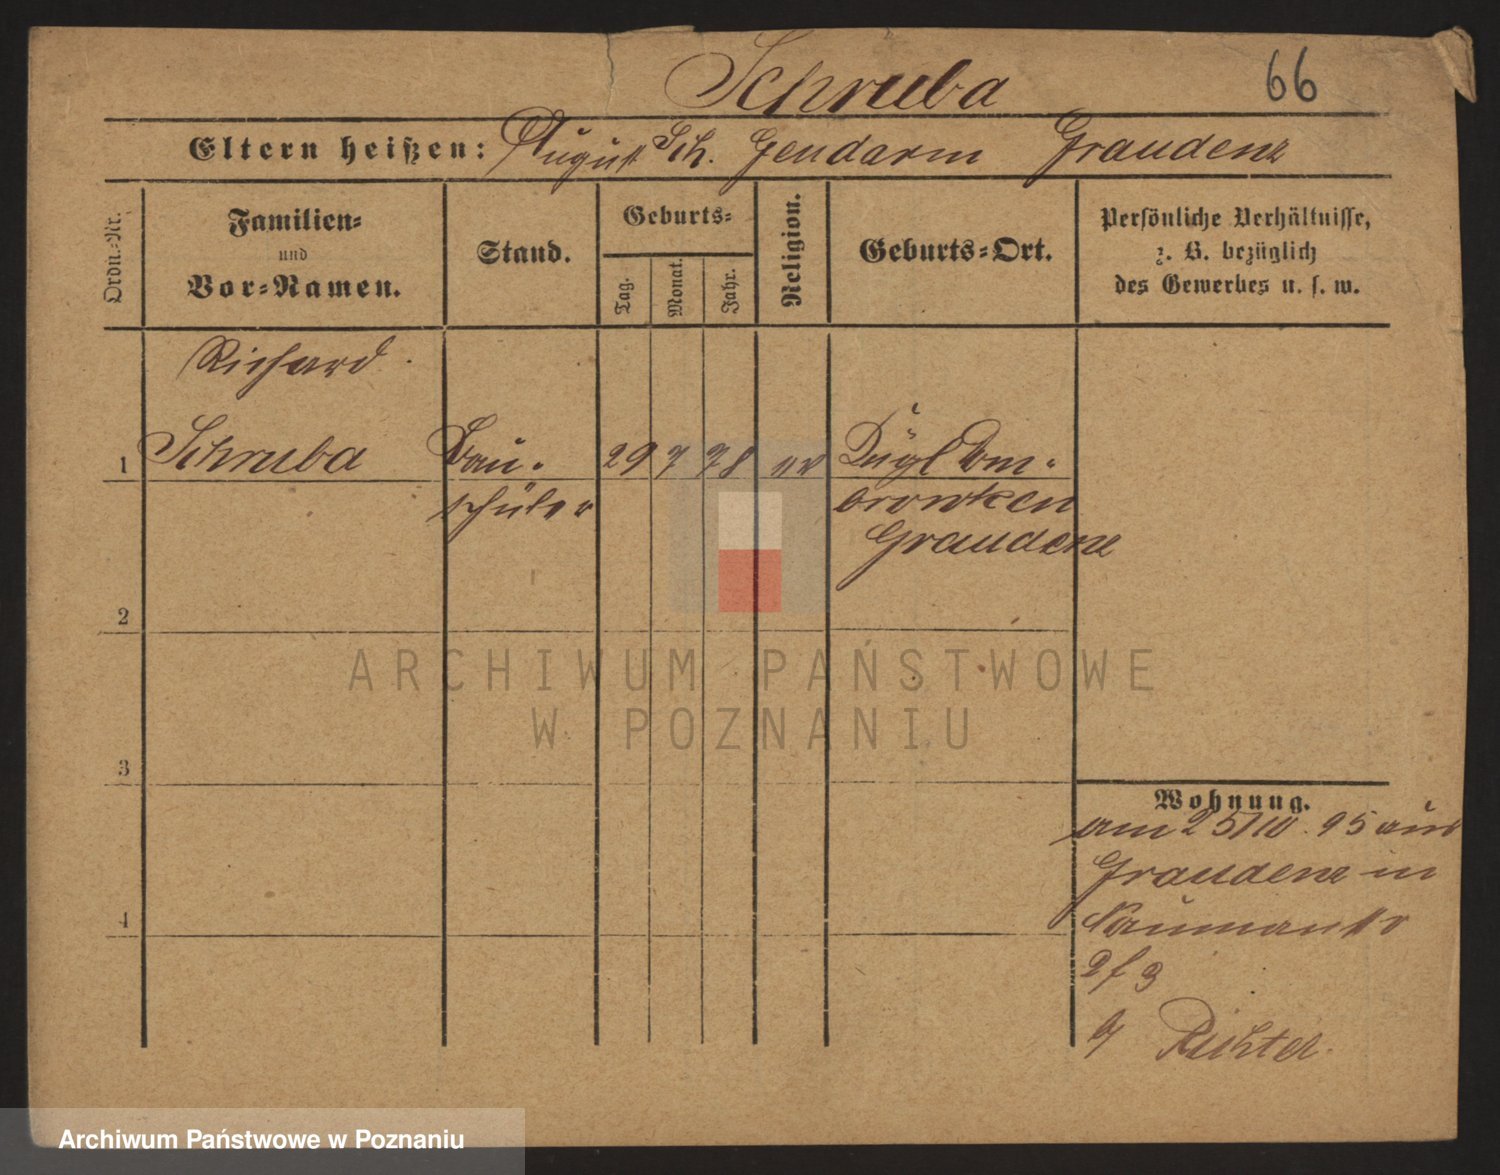 Schruba
66
Eltern heißen: August Sch. Gendarm Graudenz
Ordn.=Nr.
Familien=
und
Vor=Namen.
Stand.
Geburts=
Tag.
Monat.
Jahr.
Religion.
Geburts=Ort.
Persönliche Verhältnisse,
z. B. bezüglich
des Gewerbes u. s. w.
Richard
1 Schruba Bau- 29 7 78 ev Dom-
schüler browken
Graudenz
2
3
4
Wohnung.
am 25/10. 95 aus
Graudenz in
Naumannstr
2/3
Richter
ARCHIWUM PAŃSTWOWE
W POZNANIU
Archiwum Państwowe w Poznaniu